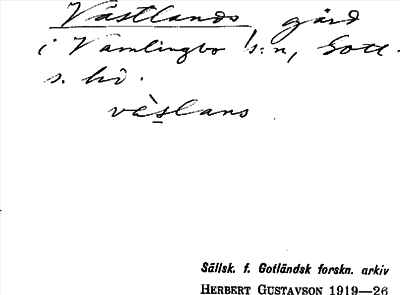 Västlands gård
i Vamlingbo s:n, Gotl.
s. hd.
vä̀slans
Sällsk. f. Gotländsk forskn. arkiv
HERBERT GUSTAVSON 1919—26